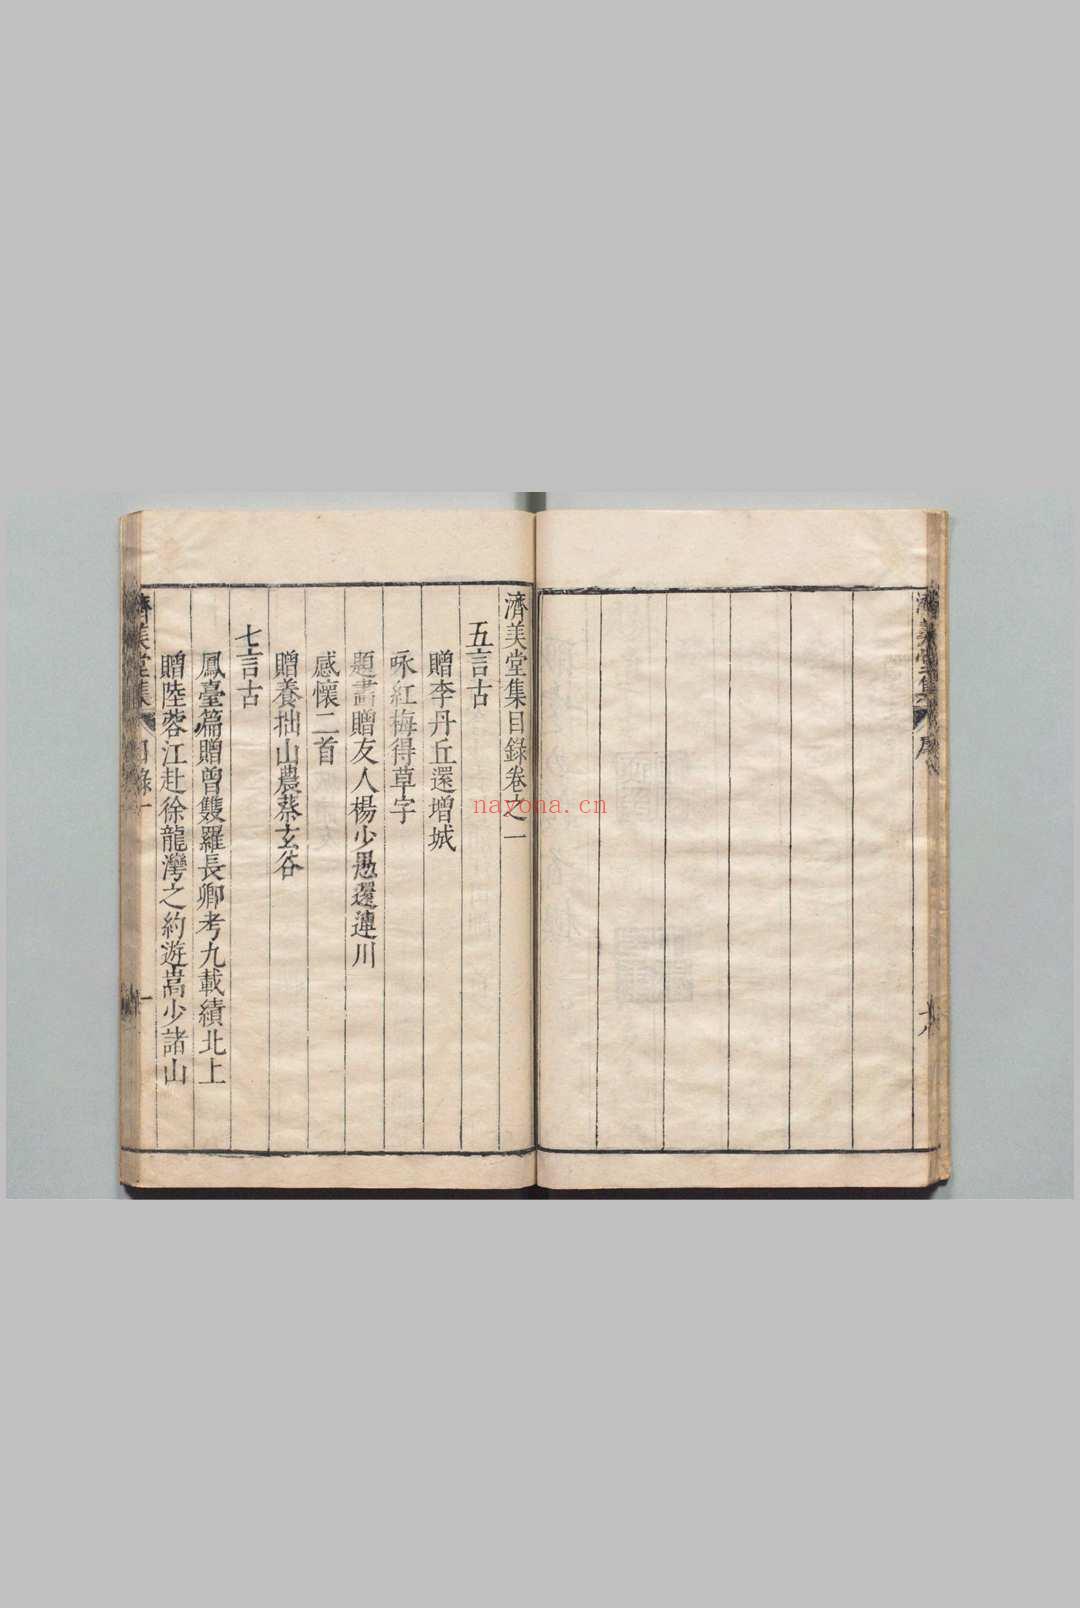 濟美堂集目錄卷之一
五言古
贈李丹丘還增城
咏紅梅得草字
題畵贈友人楊少愚還漣川
感懷二首
贈養拙山農蔡玄谷
七言古
鳳臺篇贈曾雙羅長卿考九載績北上
贈陸蓉江赴徐龍灣之約遊嵩少諸山
濟美堂集 目錄一 一
nayona.cn